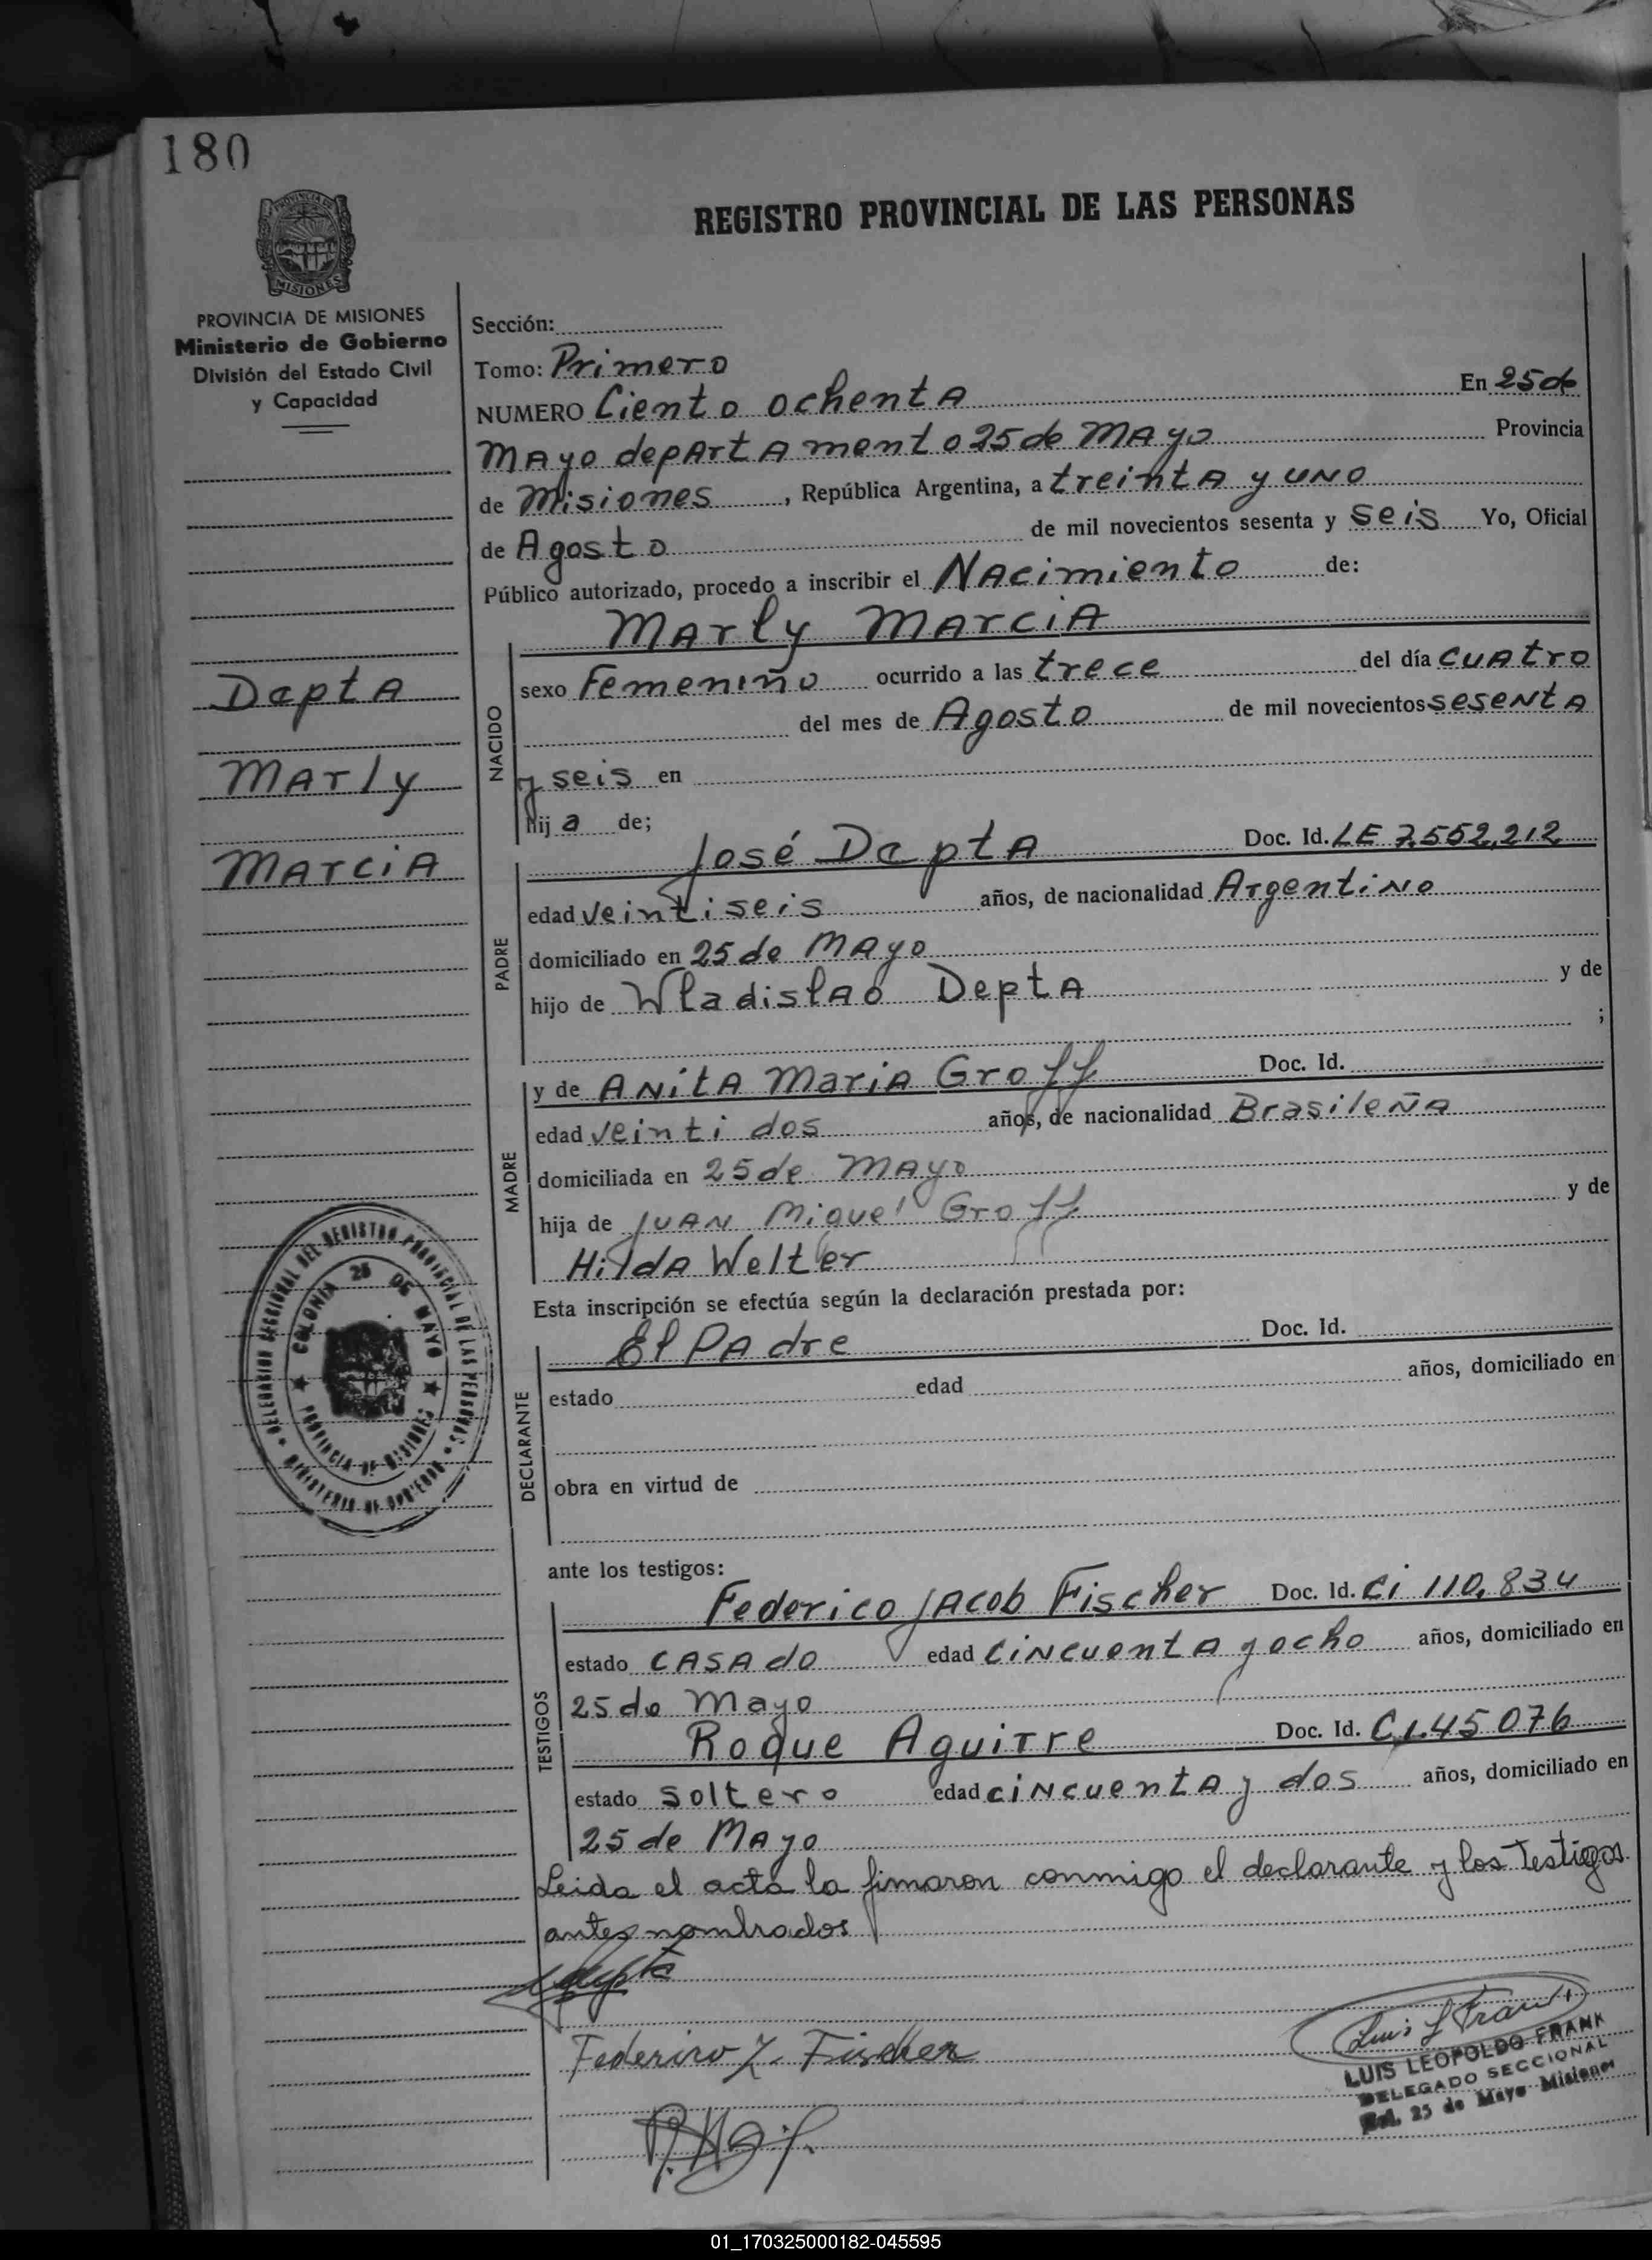 180
REGISTRO PROVINCIAL DE LAS PERSONAS
PROVINCIA DE
MISIONES
PROVINCIA DE MISIONES
Ministerio de Gobierno
División del Estado Civil
y Capacidad
Depta
Marly
Marcia
DELEGACION SECCIONAL DEL REGISTRO PROVINCIAL DE LAS PERSONAS
MINISTERIO DE GOBIERNO
COLONIA 25 DE MAYO
PROVINCIA DE MISIONES
Sección:
Tomo: Primero
NUMERO Ciento ochenta En 25 de
Mayo departamento 25 de Mayo Provincia
de Misiones, República Argentina, a treinta y uno
de Agosto de mil novecientos sesenta y seis Yo, Oficial
Público autorizado, procedo a inscribir el Nacimiento de:
Marly Marcia
NACIDO
sexo Femeniño ocurrido a las trece del día cuatro
del mes de Agosto de mil novecientos sesenta
y seis en
hij a de;
José Depta Doc. Id. LE 7.552,212
PADRE
edad veintiseis años, de nacionalidad Argentino
domiciliado en 25 de Mayo
hijo de Wladislao Depta y de
;
y de Anita Maria Groff Doc. Id.
MADRE
edad veinti dos años, de nacionalidad Brasileña
domiciliada en 25 de Mayo
hija de Juan Miguel Groff y de
Hilda Welter
Esta inscripción se efectúa según la declaración prestada por:
El Padre Doc. Id.
DECLARANTE
estado edad años, domiciliado en
obra en virtud de
ante los testigos:
Federico Jacob Fischer Doc. Id. Ci 110.834
TESTIGOS
estado casado edad cincuenta y ocho años, domiciliado en
25 de Mayo
Roque Aguirre Doc. Id. C.I.45.076
estado soltero edad cincuenta y dos años, domiciliado en
25 de Mayo
Leida el acta la fimaron conmigo el declarante y los Testigos
antes nombrados
Depta
Federico J. Fischer
Luis L Frank
LUIS LEOPOLDO FRANK
DELEGADO SECCIONAL
25 de Mayo Misiones
01_170325000182-045595